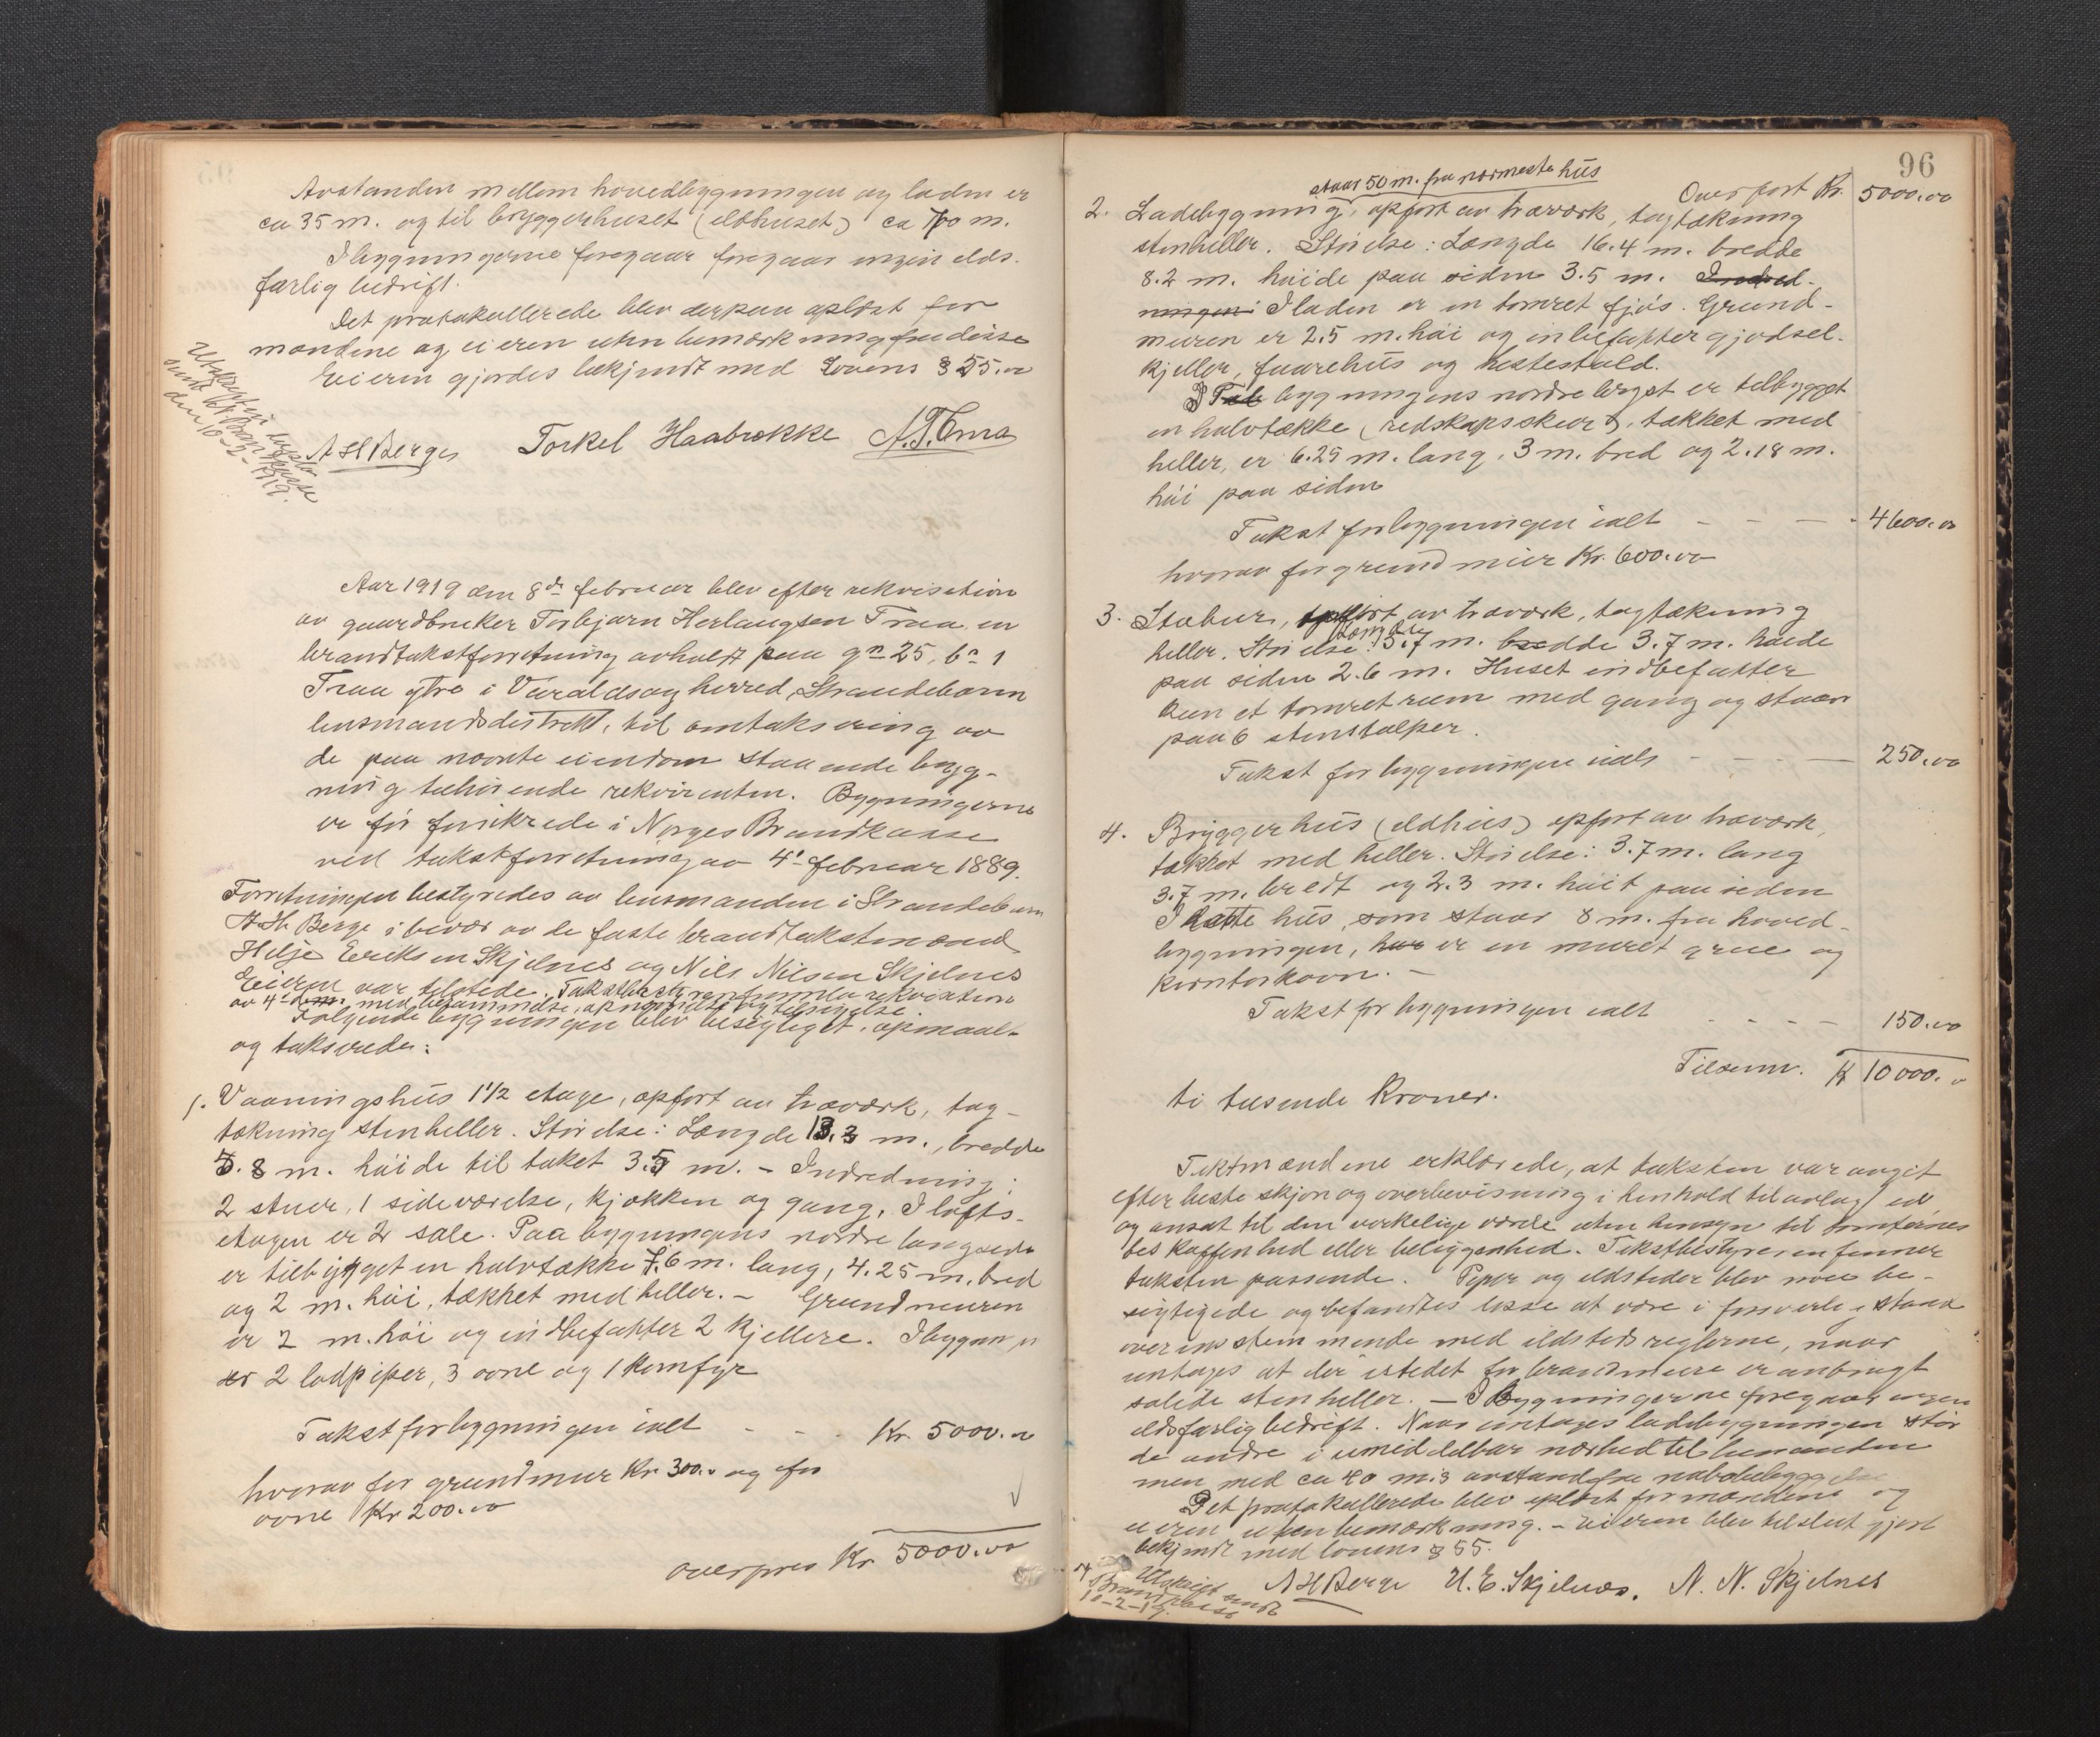 Avstanden mellem hovedbygningen og laden er
ca 35 m. og til bryggerhuset (eldhuset) ca 100 m.
I bygningerne foregaar foregaar ingen elds-
farlig bedrift.
Det protokollerede blev derpaa oplæst for
mændene og eieren uten bemærkning fra disse
Eieren gjordes bekjendt med lovens § 55.
Utskrift
sendt Br. kasse
den 10-2-1919.
A H Berge Torkel Haabrekke A. T.
Aar 1919 den 8de februar blev efter rekvisition
av gaardbruker Torbjørn Herlaugsen Traa en
brandtakstforretning avholdt paa gn 25, bn 1
Traa ytre i Varaldsøy herred, Strandebarm
lensmandsdistrikt, til omtaksering av
de paa nævnte eiendom staaende byg-
ning tilhørende rekvirenten. Bygningerne
er før forsikrede i Norges Brandkasse
ved takstforretning av 4de februar 1889.
Forretningen bestyredes av lensmanden i Strandebarm
A. H. Berge i bevær av de faste brandtakstmænd
Helje Eriksen Skjelnes og Nils Nilsen Skjelnes
Eieren var tilstede. Takstbestyreren fremla rekvisition
av 4de dem med berammelse, opnævnelse og tilsigelse
Følgende bygninger blev besigtiget, opmaalt
og takserede:
1. Vaaningshus 1 1/2 etage, opført av træværk, tag-
tækning stenheller. Størelse: Længde 13.3 m., bredde
5.8 m. høide til taket 3.5 m. - Indredning:
2 stuer, 1 sideværelse, kjøkken og gang. I lofts-
etagen er 2 sale. Paa bygningens nordre langside
er tilbygget en halvtække 7.6 m. lang, 4.25 m. bred
og 2 m. høi, tækket med heller. - Grundmuren
er 2 m. høi og indbefatter 2 kjellere. I bygningen
er 2 lodpiper, 3 ovne og 1 komfyr
Takst for bygningen ialt - - . Kr. 5000.00
hvorav for grundmur Kr. 300.00 og for
ovne Kr 200.00
overføres Kr. 5000.00
96
Overført Kr. 5000.00
staar 50 m. fra nærmeste hus
2. Ladebygning, opført av træværk, tagtækning
stenheller. Størelse: Længde 16.4 m. bredde
8.2 m. høide paa siden 3.5 m. Indred-
ningen: I laden er en tømret fjøs. Grund-
muren er 2.5 m. høi og indbefatter gjødsel-
kjeller, faarehus og hestestald.
Til bygningens nordre langs er tilbygget
en halvtække (redskapsskur), tækket med
heller, er 6.29 m. lang, 3 m. bred og 2.18 m.
høi paa siden
Takst for bygningen ialt - - - - 4600.00
hvorav for grundmur Kr. 600.00
3. Stabur, opført av træværk, tagtækning
heller. Størelse: længde 5.7 m. bredde 3.7 m. høide
paa siden 2.6 m. Huset indbefatter
kun et tømret rum med gang og staar
paa 6 stenstolper.
Takst for bygningen ialt - - - - 250.00
4. Bryggerhus (eldhus) opført av træværk,
tækket med heller. Størelse: 3.7 m. lang
3.7 m. bredt og 2.3 m. høit paa siden
I dette hus, som staar 8 m. fra hoved-
bygningen, har er en muret grue og
korntørkovn. -
Takst for bygningen ialt - - - - 150.00
Tilsum. Kr 10000.00
ti tusende Kroner.
Takstmændene erklærede, at taksten var avgit
efter beste skjøn og overbevisning i henhold til avlagt ed
og ansat til den virkelige værdi uten hensyn til tomternes
beskaffenhed eller beliggenhed. Takstbestyreren finner
taksten passende. Piper og eldsteder blev nøie be-
sigtigede og befandtes disse at være i forsvarlig stand
overensstemmende med ildstedsreglerne, naar
undtages at der istedet for brandmure er anbragt
solide stenheller. - I bygningerne foregaar ingen
eldsfarlig bedrift. Naar undtages ladebygningen staar
de andre i umiddelbar nærhed til hinanden
men med ca 40 m.s avstand fra nabobebyggelse
Det protokollerede blev oplæst for mændene og
eieren uten bemærkning. - Eieren blev tilslut gjort
bekjendt med lovens § 55.
Utskrift sendt
Brandkasse
10-2-19.
A H Berge H. E. Skjelnæs. N. N. Skjelnes